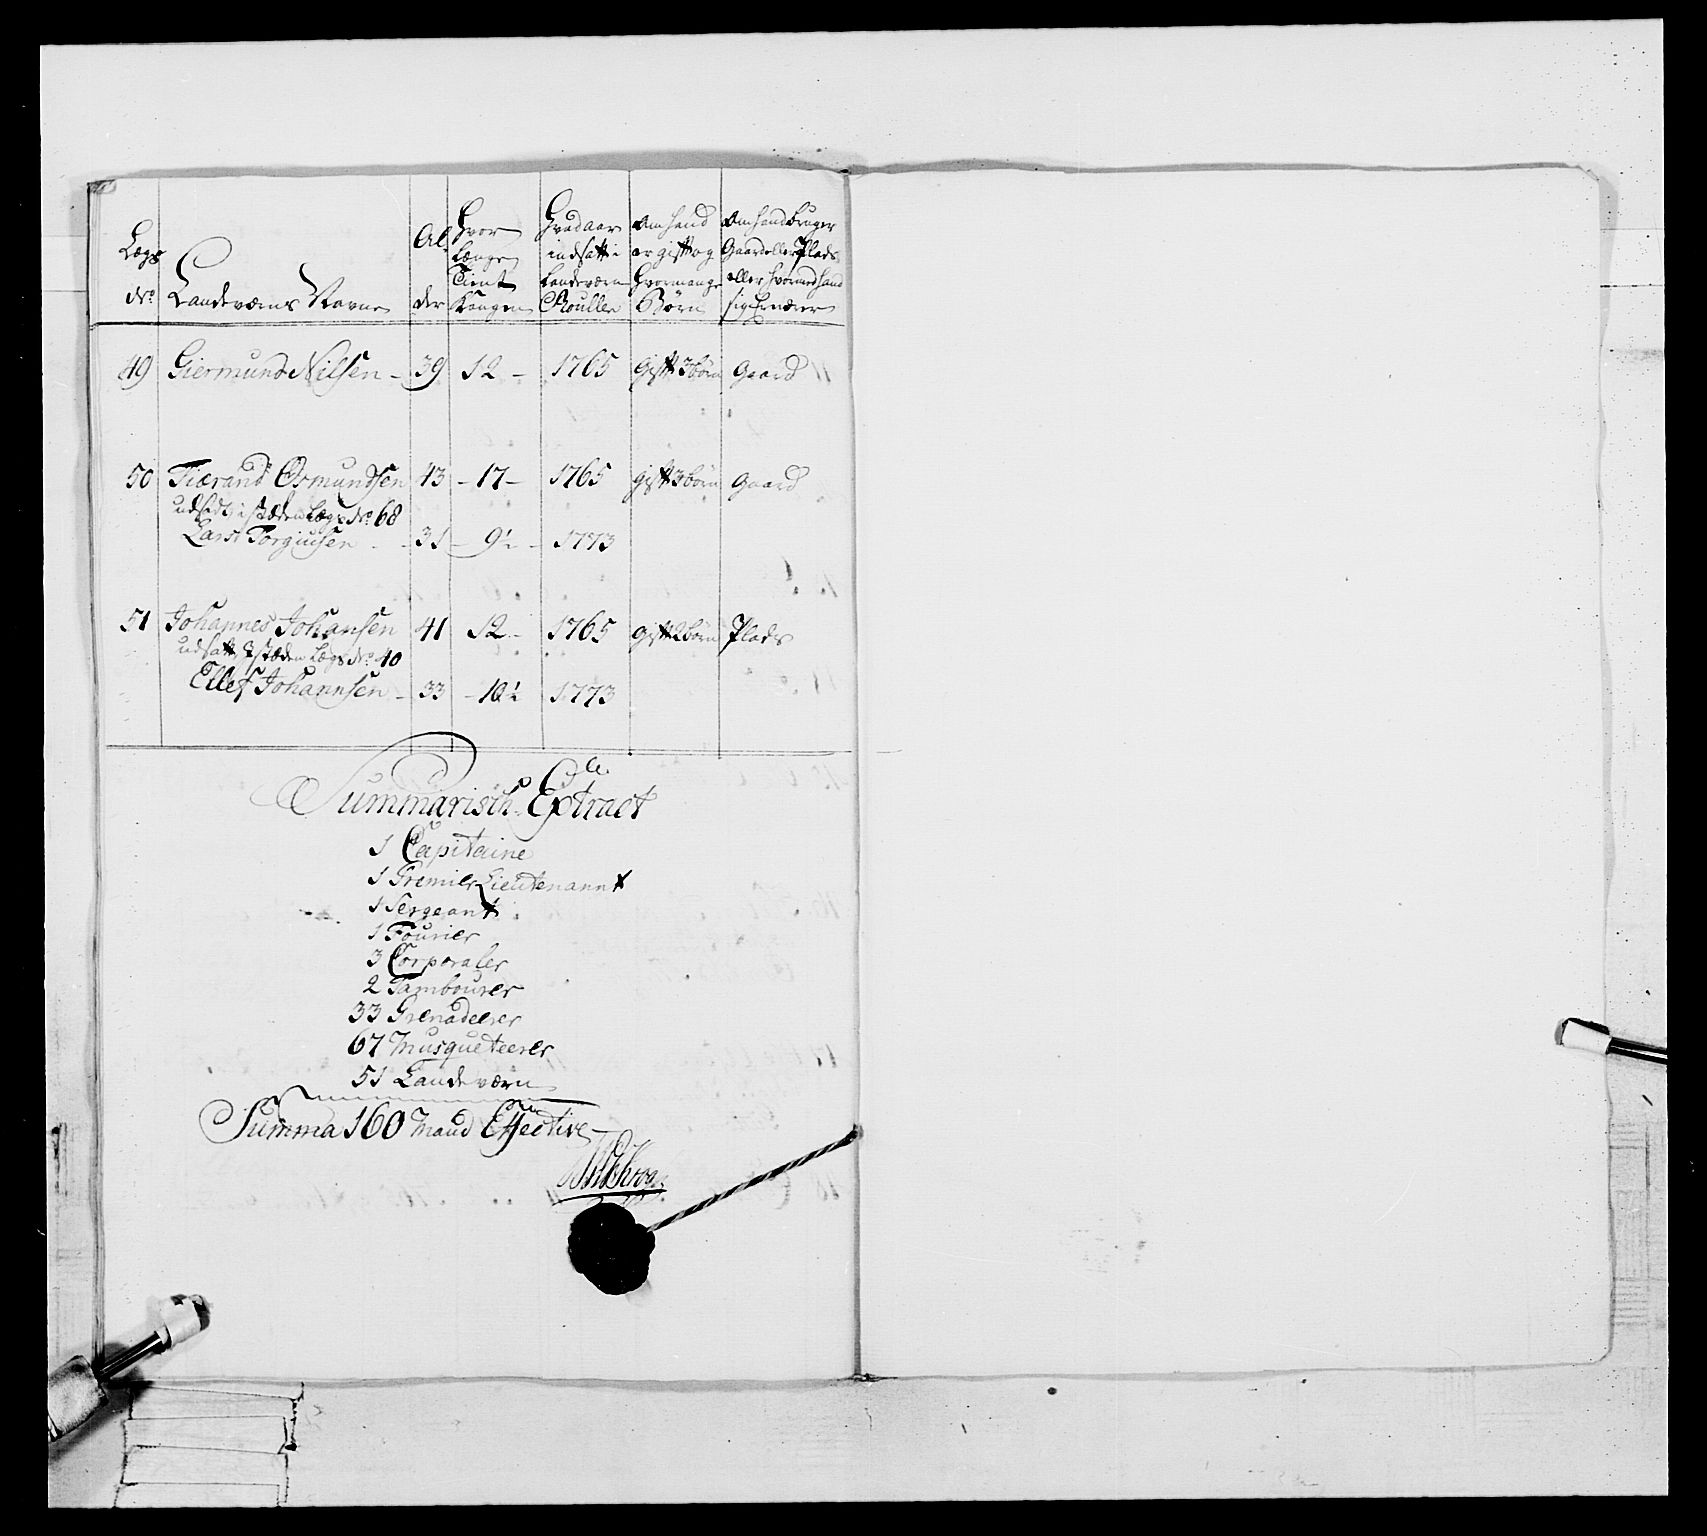 Lægs No. | Landeværns Navne | Alder | Hvor længe Tient Kongen | Hvad aar indsatt i Landeværns Roullen | Om hand er gift og hvormange Børn | Om hand bruger Gaard eller Plads eller hvormed hand sig Ernærer
49 Giermund Nilsen – 39 12 – 1765 Gift 3 børn Gaard
50 Tiærand Osmundsen 43 – 17 – 1765 gift 3 børn Gaard
udsadt i stæden Lægs No. 68
Lars Torgiusen – 31 – 9½ – 1773
51 Johannes Johansen 41 12 – 1765 gift 2 børn Plads
udsatt i stæden Lægs No. 40
Ellef Johannsen – 33 – 10½ 1773
Summarisch Extract
1 Capitaine
1 Premier Lieutenannt
1 Sergeant
1 Fourier
3 Corporaler
2 Tambourer
33 Grenadeerer
67 Musqueteerer
51 Landeværn
Summa 160 Mand Effective